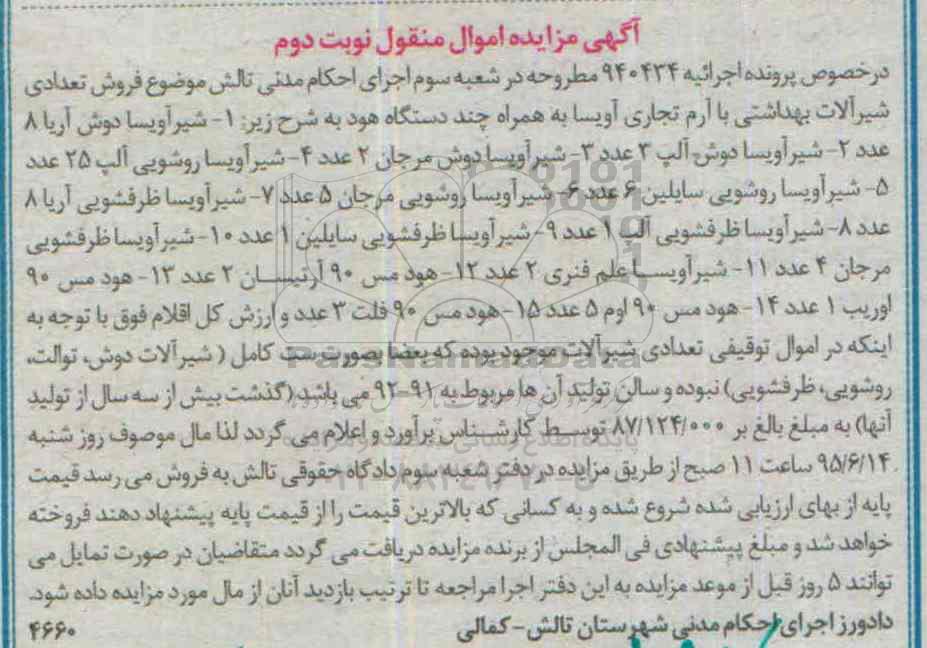 آگهی مزایده اموال منقول نوبت دوم
درخصوص پرونده اجرائیه ۹۴۰۴۳۴ مطروحه در شعبه سوم اجرای احکام مدنی تالش موضوع فروش تعدادی
شیرآلات بهداشتی با آرم تجاری آویسا به همراه چند دستگاه هود به شرح زیر: ۱- شیرآویسا دوش آریا ۸
عدد ۲- شیرآویسا دوش آلپ ۳ عدد ۳- شیرآویسا دوش مرجان ۲ عدد ۴- شیرآویسا روشویی آلپ ۲۵ عدد
۵- شیرآویسا روشویی سایلین ۶ عدد ۶- شیرآویسا روشویی مرجان ۵ عدد ۷- شیرآویسا ظرفشویی آریا ۸
عدد ۸- شیرآویسا ظرفشویی آلپ ۱ عدد ۹- شیرآویسا ظرفشویی سایلین ۱ عدد ۱۰- شیرآویسا ظرفشویی
مرجان ۴ عدد ۱۱- شیرآویسا علم فنری ۲ عدد ۱۲- هود مس ۹۰ آرتیسان ۲ عدد ۱۳- هود مس ۹۰
اوریب ۱ عدد ۱۴- هود مس ۹۰ اوم ۵ عدد ۱۵- هود مس ۹۰ فلت ۳ عدد و ارزش کل اقلام فوق با توجه به
اینکه در اموال توقیفی تعدادی شیرآلات موجود بوده که بعضا بصورت ست کامل ( شیرآلات دوش، توالت،
روشویی، ظرفشویی) نبوده و سالن تولید آن ها مربوط به ۹۱-۹۲ می باشد (گذشت بیش از سه سال از تولید
آنها) به مبلغ بالغ بر ۸۷/۱۲۴/۰۰۰ توسط کارشناس برآورد و اعلام می گردد لذا مال موصوف روز شنبه
۹۵/۶/۱۴ ساعت ۱۱ صبح از طریق مزایده در دفتر شعبه سوم دادگاه حقوقی تالش به فروش می رسد قیمت
پایه از بهای ارزیابی شده شروع شده و به کسانی که بالاترین قیمت را از قیمت پایه پیشنهاد دهند فروخته
خواهد شد و مبلغ پیشنهادی فی المجلس از برنده مزایده دریافت می گردد متقاضیان در صورت تمایل می
توانند ۵ روز قبل از موعد مزایده به این دفتر اجرا مراجعه تا ترتیب بازدید آنان از مال مورد مزایده داده شود.
دادورز اجرای احکام مدنی شهرستان تالش- کمالی
۴۶۶۰
ParsNamadData